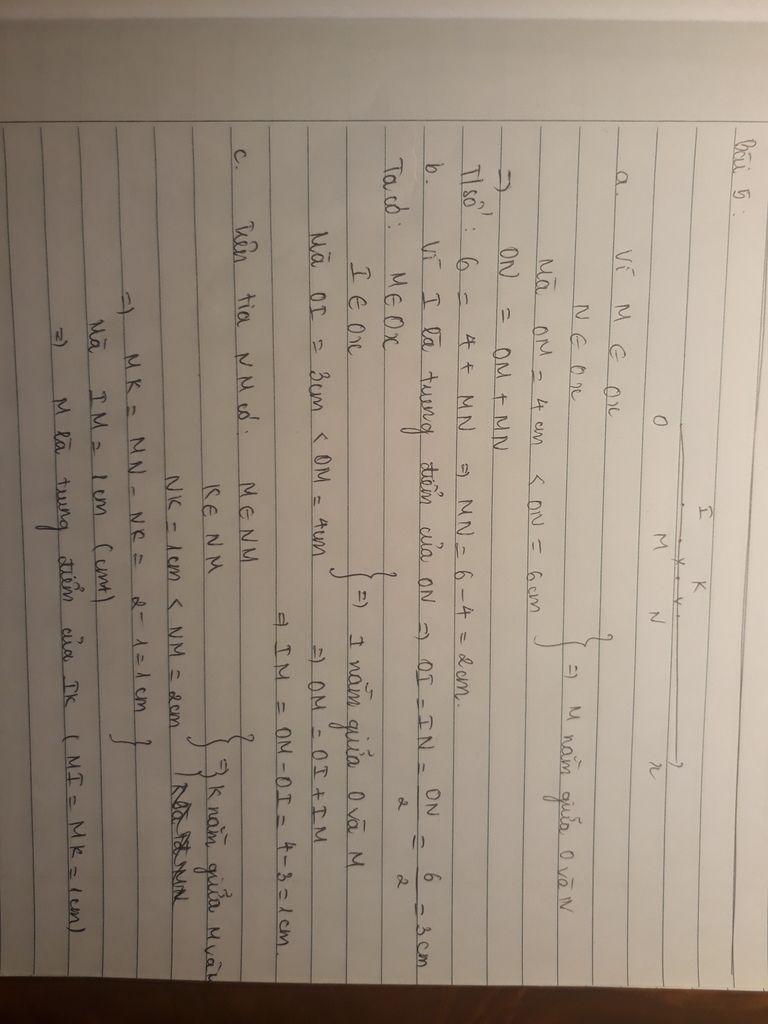 bài 5:
I K
O M N x
a. Vì M ∈ Ox
N ∈ Ox
Mà OM = 4cm < ON = 6cm } => M nằm giữa O và N
=> ON = OM + MN
T/số: 6 = 4 + MN => MN = 6 - 4 = 2cm.
b. Vì I là trung điểm của ON => OI = IN = ON/2 = 6/2 = 3cm
Ta có: M ∈ Ox
I ∈ Ox } => I nằm giữa O và M
Mà OI = 3cm < OM = 4cm => OM = OI + IM
=> IM = OM - OI = 4 - 3 = 1cm.
c. Trên tia NM có: M ∈ NM
K ∈ NM } => K nằm giữa M và
NK = 1cm < NM = 2cm
=> MK = MN - NK = 2 - 1 = 1cm }
Mà IM = 1cm (cmt)
=> M là trung điểm của IK (MI = MK = 1cm)